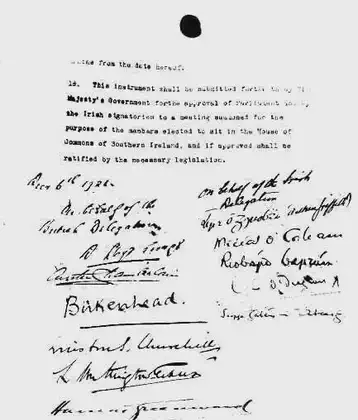 from the date hereof.
18. This instrument shall be submitted forthwith by His
Majesty's Government for the approval of Parliament and by
the Irish signatories to a meeting summoned for the
purpose of the members elected to sit in the House of
Commons of Southern Ireland, and if approved shall be
ratified by the necessary legislation.
Decr 6th 1921.
On behalf of the
British Delegation
D Lloyd George
Austen Chamberlain
Birkenhead.
Winston S. Churchill
L Worthington Evans
Hamar Greenwood
On behalf of the Irish
Delegation
Art Ó Gríobhtha (Arthur Griffith)
Micheál Ó Coileain
Riobárd Bartún